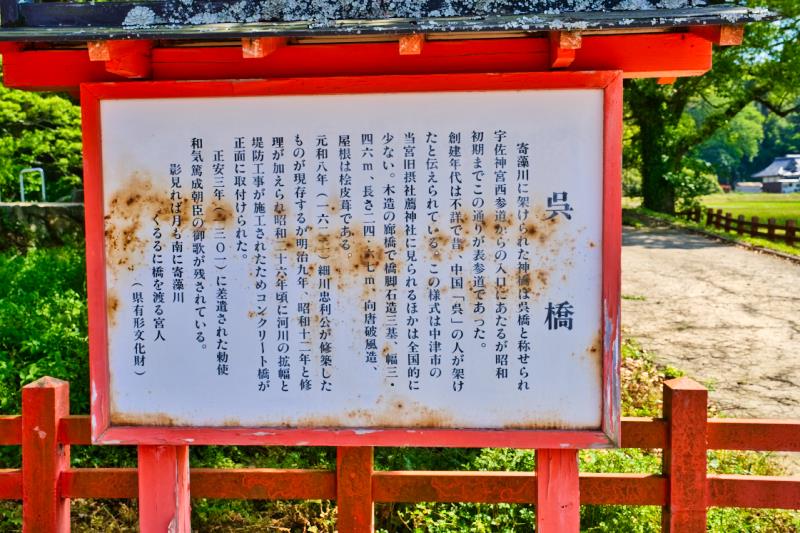 呉橋
寄藻川に架けられた神橋は呉橋と称せられ
宇佐神宮西参道からの入口にあたるが昭和
初期までこの通りが表参道であった。
創建年代は不詳で昔、中国「呉」の人が架け
たと伝えられている。この様式は中津市の
当宮旧摂社薦神社に見られるほかは全国的に
少ない。木造の廊橋で橋脚石造三基、幅三・
四六m、長さ二四・六七m 向唐破風造、
屋根は桧皮葺である。
元和八年(一六二二)細川忠利公が修築した
ものが現存するが明治九年 昭和十二年と修
理が加えられ昭和二十六年頃に河川の拡幅と
堤防工事が施工されたためコンクリート橋が
正面に取付けられた。
正安三年(一三〇一)に差遣された勅使
和気篤成朝臣の御歌が残されている。
影見れば月も南に寄藻川
くるるに橋を渡る宮人
(県有形文化財)